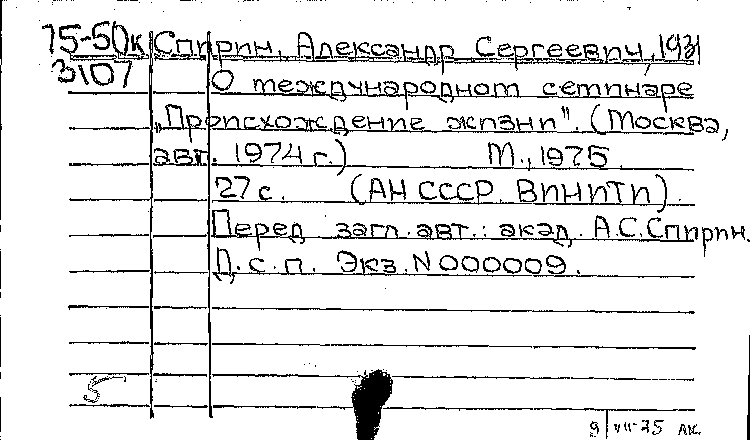 75-50к Спирин, Александр Сергеевич, 1931
3107 О международном семинаре
„Происхождение жизни". (Москва,
авг. 1974 г.) М., 1975.
27 с. (АН СССР. ВИНИТИ).
Перед загл. авт.: акад. А.С. Спирин.
Д.с.п. Экз. N 000009.
5
9 VII-75 АК.